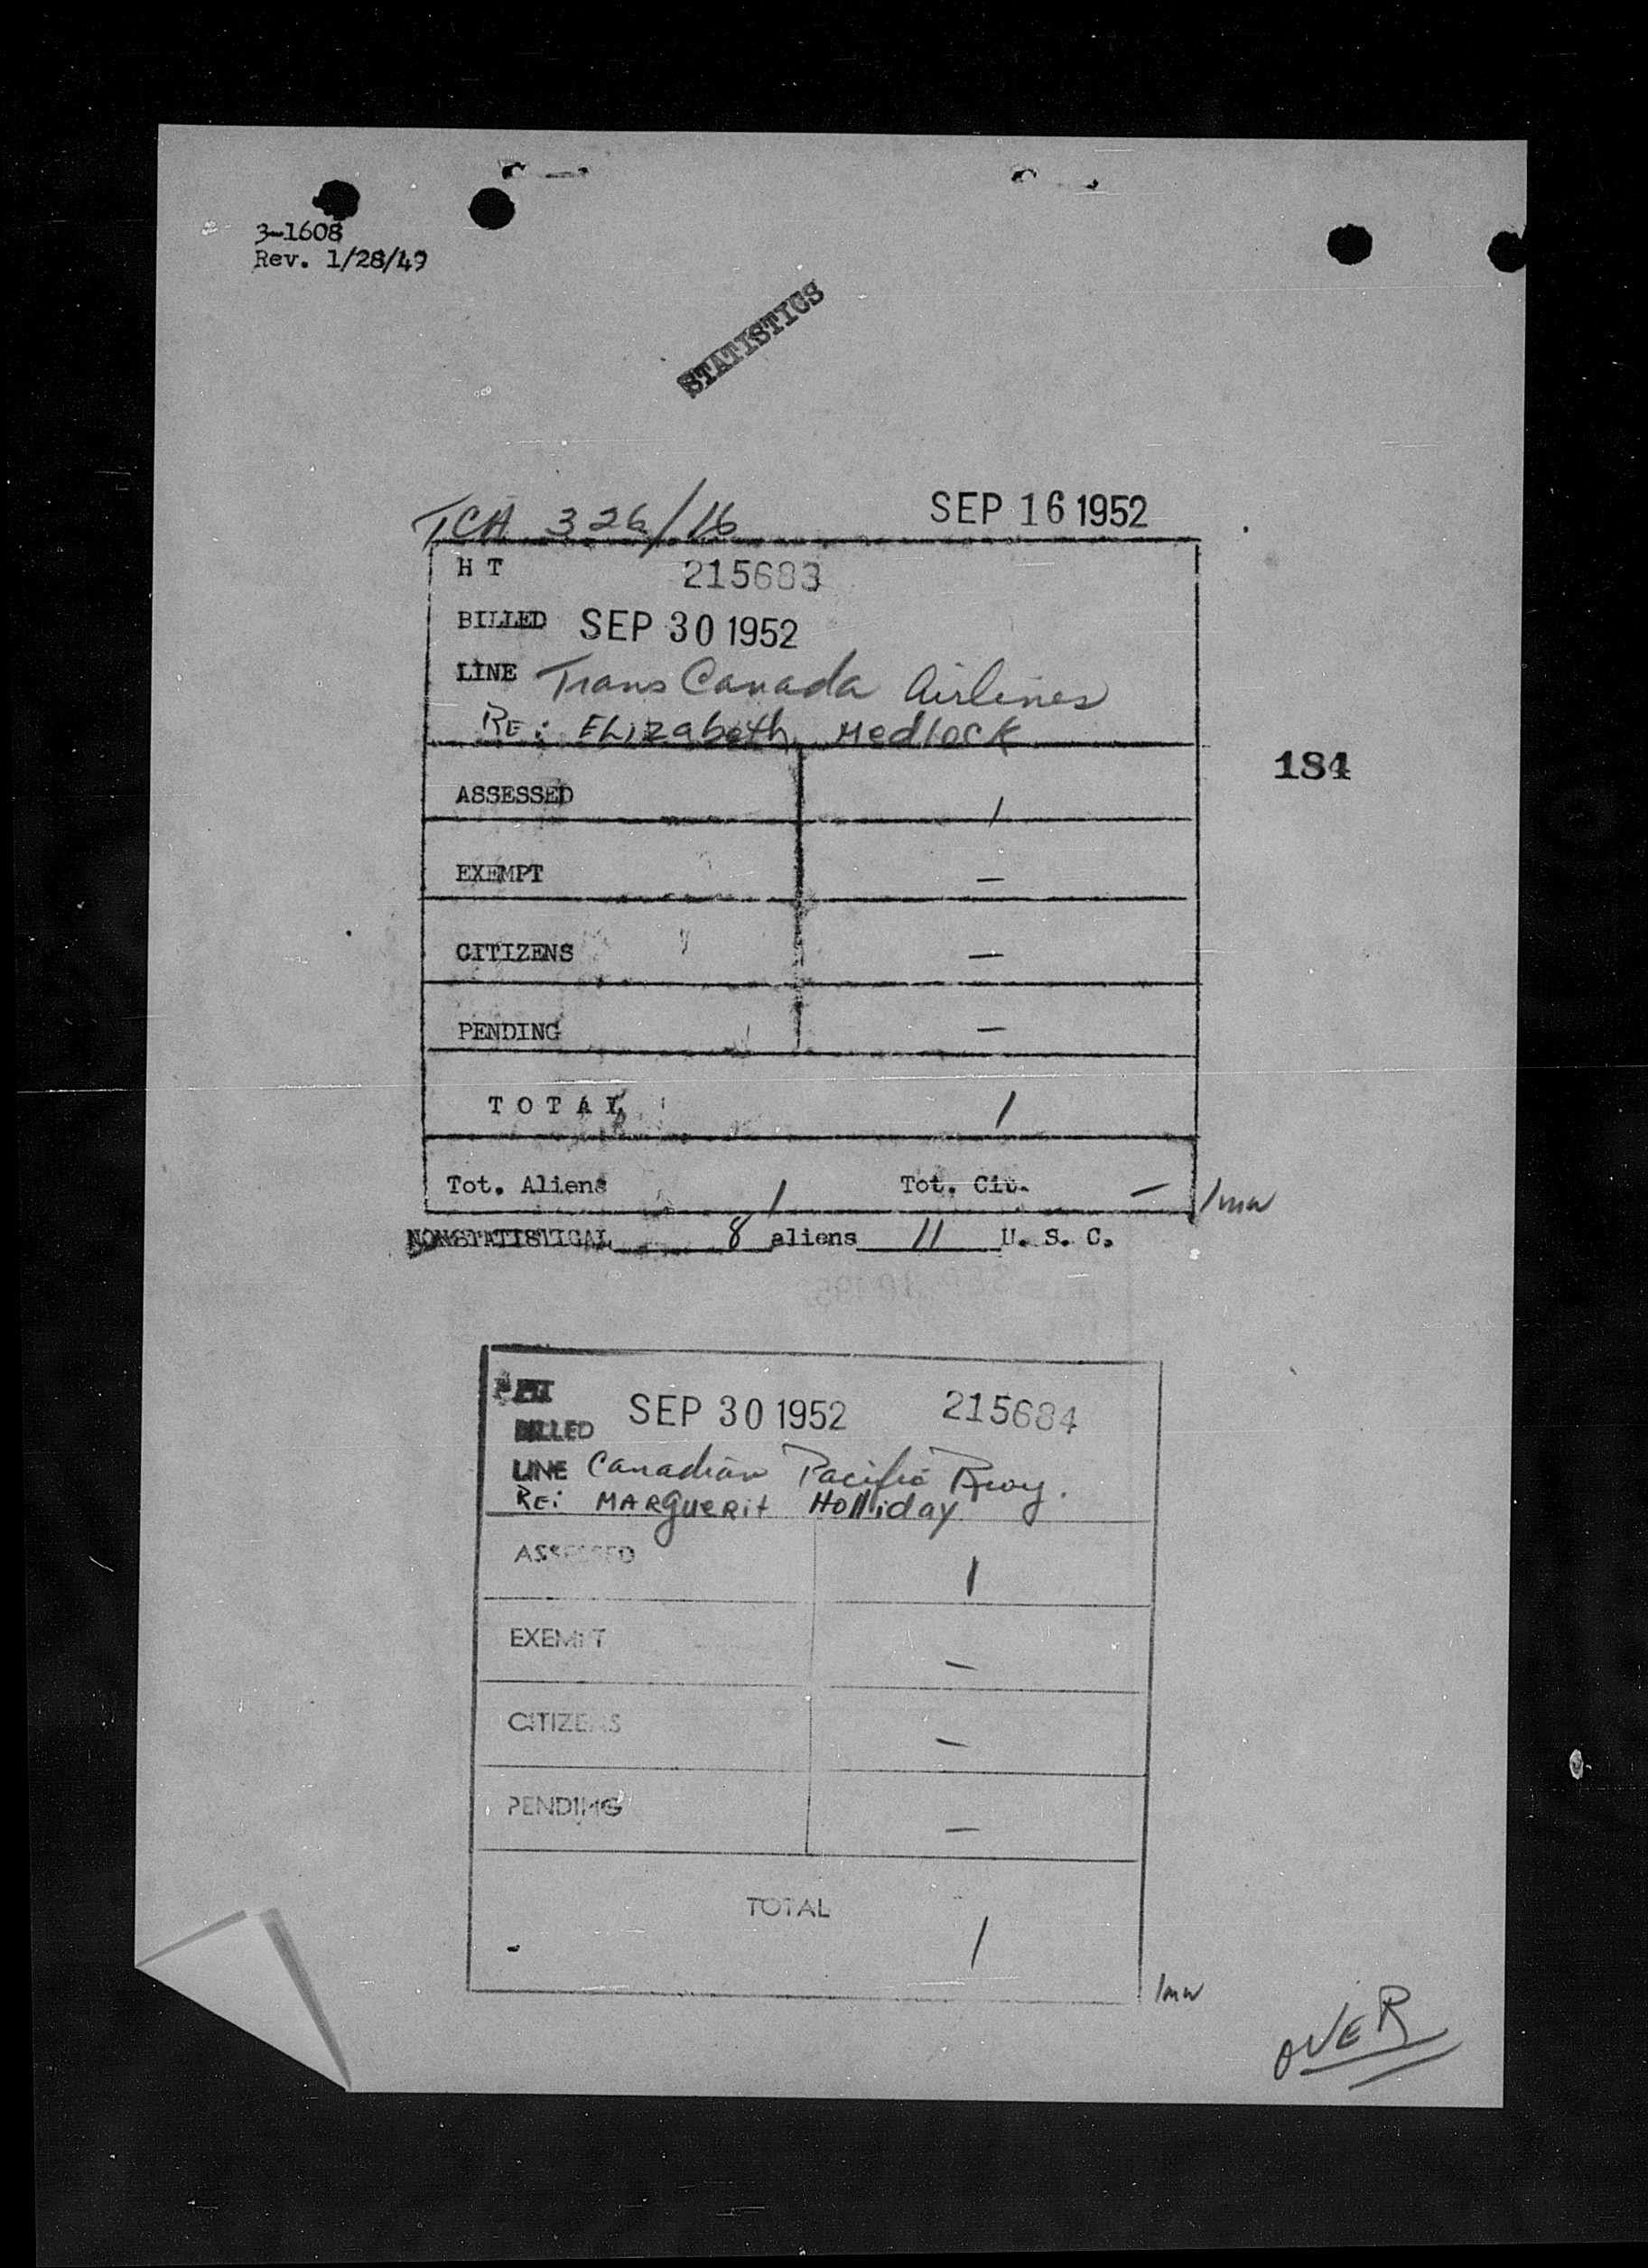 3-1608
Rev. 1/28/49
STATISTICS
TCA 326/16 SEP 16 1952
H T 215683
BILLED SEP 30 1952
LINE Trans Canada Airlines
RE: ELIZabeth Medlock
184
ASSESSED 1
EXEMPT —
CITIZENS —
PENDING —
TOTAL 1
Tot. Aliens 1 Tot. Cit. —
NONSTATISTICAL 8 aliens 11 U. S. C.
BILLED SEP 30 1952 215684
LINE Canadian Pacific Rwy.
RE: MARgueRit Holliday
ASSESSED 1
EXEMPT —
CITIZENS —
PENDING —
TOTAL
1
OVER